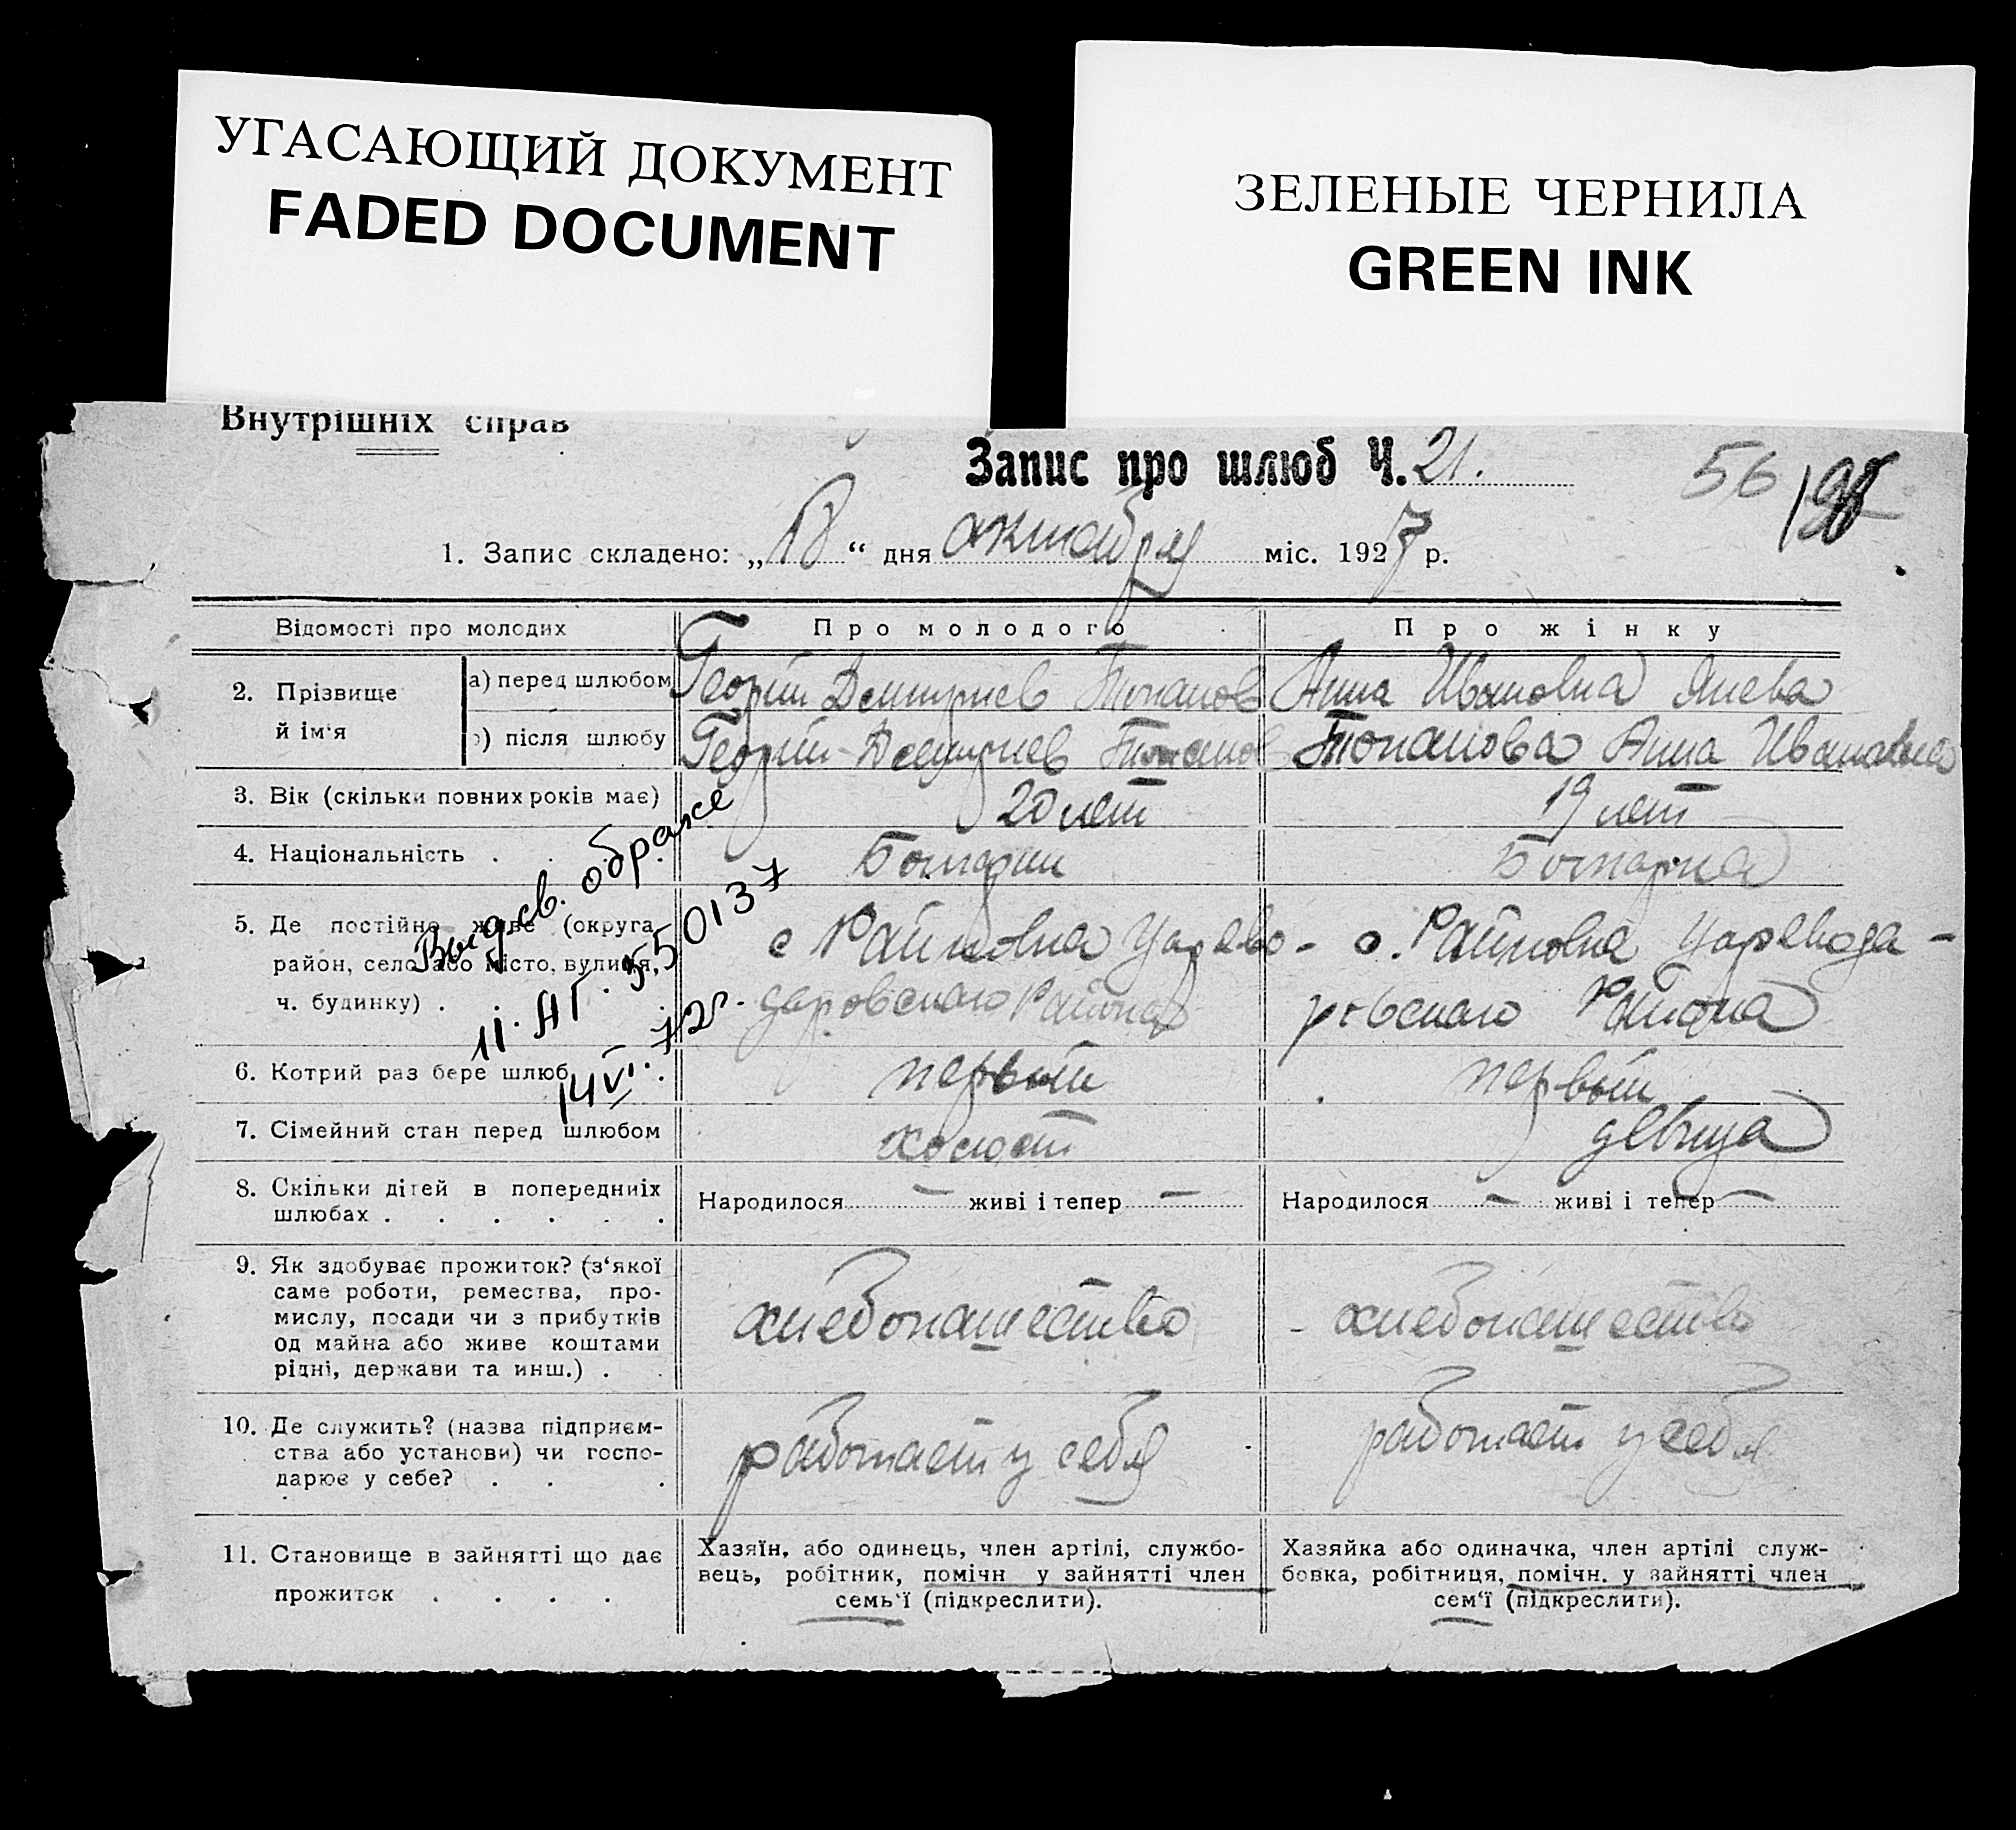 УГАСАЮЩИЙ ДОКУМЕНТ
FADED DOCUMENT
ЗЕЛЕНЫЕ ЧЕРНИЛА
GREEN INK
Внутрішніх справ
Запис про шлюб Ч. 21.
56
1. Запис складено: „18“ дня октября міс. 1927 р.
Відомості про молодих
Про молодого
Про жінку
2. Прізвище й ім'я
а) перед шлюбом
Георгій Топалов
Анна Ивановна Янева
) після шлюбу
Георгій Топалов
Топалова Анна Ивановна
3. Вік (скільки повних років має)
20 лет
19 лет
4. Національність .
Болгарин
Болгарка
5. Де постійно живе (округа, район, село або місто, вулиця, ч. будинку) .
с Райновка Царево-
даровского Района
с. Райновка Царевода-
ровского Района
Выд. св. о браке
11. АГ. 550137
14 VI. 72г.
6. Котрий раз бере шлюб .
первый
первый
7. Сімейний стан перед шлюбом
холост
девица
8. Скільки дітей в попередниіх
шлюбах . . . . . .
Народилося — живі і тепер —
Народилося — живі і тепер —
9. Як здобуває прожиток? (з'якої
саме роботи, ремества, про-
мислу, посади чи з прибутків
од майна або живе коштами
рідні, держави та инш.) .
хлебопашество
- хлебопашество
10. Де служить? (назва підприєм-
ства або установи) чи госпо-
дарює у себе? . . .
работает у себя
работает у себя
11. Становище в зайнятті що дає
прожиток . . . .
Хазяїн, або одинець, член артілі, службо-
вець, робітник, помічн у зайнятті член
семь'ї (підкреслити).
Хазяйка або одиначка, член артілі служ-
бовка, робітниця, помічн. у зайнятті член
сем'ї (підкреслити).